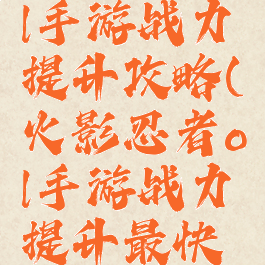 |手游战力
提升攻略(
火影忍者。
|手游战力
提升最快